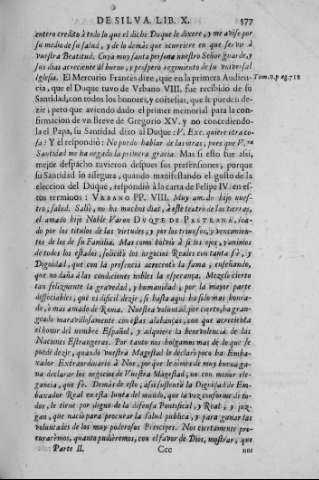 DE SILVA. LIB. X. 577
entero credito à todo lo que el dicho Duque le dixere, y me avise por
su medio de su salud, y de lo demàs que ocurriere en que servir à
vuestra Beatitud. Cuya muy santa persona nuestro Señor guarde, y
sus dias acreciente al bueno, y prospero regimiento de su universal
Iglesia. El Mercurio Francès dize, que en la primera Audien- Tom.11.pag.718
cia, que el Duque tuvo de Urbano VIII. fue recibido de su
Santidad, con todos los honores, y cortesias, que le pueden de-
zir; pero que aviendo dado el primer memorial para la con-
firmacion de vn Breve de Gregorio XV. y no concediendo-
la el Papa, su Santidad dixo al Duque: V. Exc. quiere otra co-
sa? Y èl respondiò: No puedo hablar de las otras, pues que V.
Santidad me ha negado la primera gracia. Mas si esto fue assi,
mejor despacho tuvieron despues sus pretensiones, porque
su Santidad lo assegura, quando manifestando el gusto de la
eleccion del Duque, respondiò à la carta de Felipe IV. en es-
tos terminos: VRBANO PP. VIII. Muy am. de hijo nues-
tro, salud. Saliò, no ha muchos dias, à este teatro de las tierras,
el amado hijo Noble Varon DVQVE DE PASTRANA,
do por los titulos de las virtudes, y por los triunfos, y vencimien-
tos de los de su Familia. Mas como bolviò à si los ojos, y animos
de todos los estados, solicitò los negocios Reales con tanta fè, y
Dignidad, que con la presencia acrecentò la fama, enseñando,
que no daña à las condiciones nobles la esperança. Mezcla cierto
tan felizmente la gravedad, y humanidad, por la mayor parte
dissociables, que es dificil dezir, si hasta aqui ha sido mas honra-
do, ò mas amado de Roma. Nuestra voluntad, por cierto, ha gran-
geado maravillosamente con estas alabanças, con que acrecienta
el honor del nombre Español, y adquiere la benevolencia de las
Naciones Estrangeras. Por tanto nos holgamos mas de lo que se
puede dezir, quando vuestra Magestad le declarò poco ha Emba-
xador Extraordinario à Nos, por que le oimos de muy buena ga-
na declarar los negocios de Vuestra Magestad, no con menor ele-
gancia, que fè. Demàs de esto, assi sustentò la Dignidad de Em-
baxador Real en esta junta del mundo, que la voz conforme de to-
dos, le tiene por digno de la defensa Pontifical, y Real; y juz-
gan, que naciò para procurar la salud publica, y para ganar las
voluntades de los muy poderosos Principes. Nos ciertamente pro-
curarèmos, quanto pudièremos, con el favor de Dios, mostrar, que
Parte II. Ccc nos